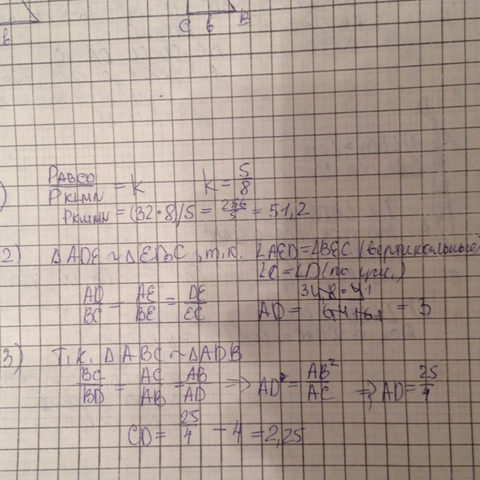 C б B
PABCD/PKLMN = k k = 5/8
PKLMN = (32·8)/5 = 256/5 = 51,2
2) ΔADE ~ ΔEBC, т.к. ∠AED=∠BEC (вертикальные)
∠C = ∠D (по усл.)
AD/BC = AE/BE = DE/EC AD = = 3
3) Т.к. ΔABC ~ ΔADB
BC/BD = AC/AB = AB/AD => AD = AB²/AC => AD = 25/4
CD = 25/4 - 4 = 2,25